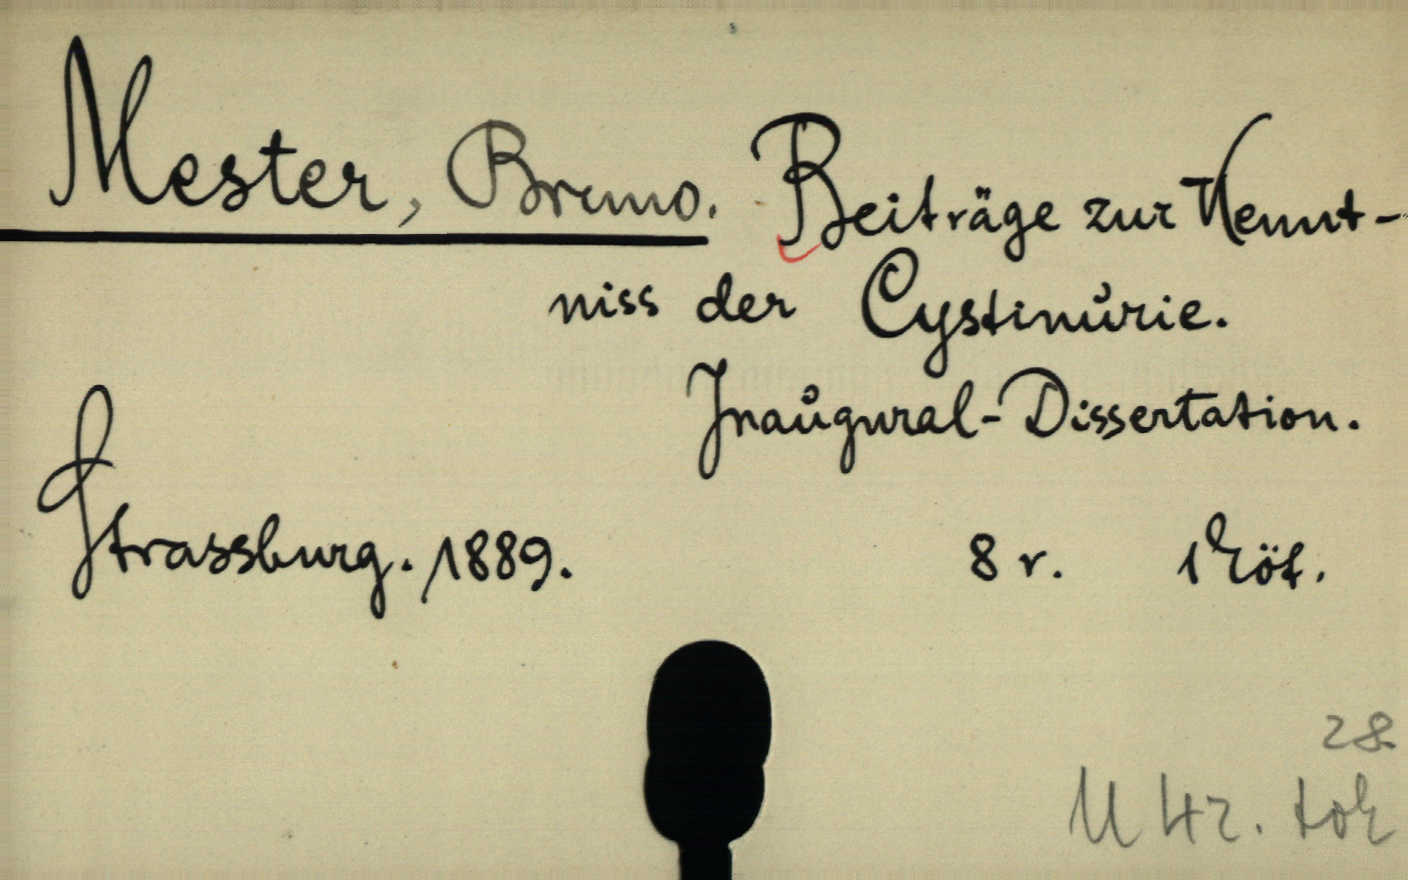 Mester, Bruno. Beiträge zur Kennt-
niss der Cystinurie.
Inaugural-Dissertation.
Strassburg. 1889. 8 r. 1 köt.
28